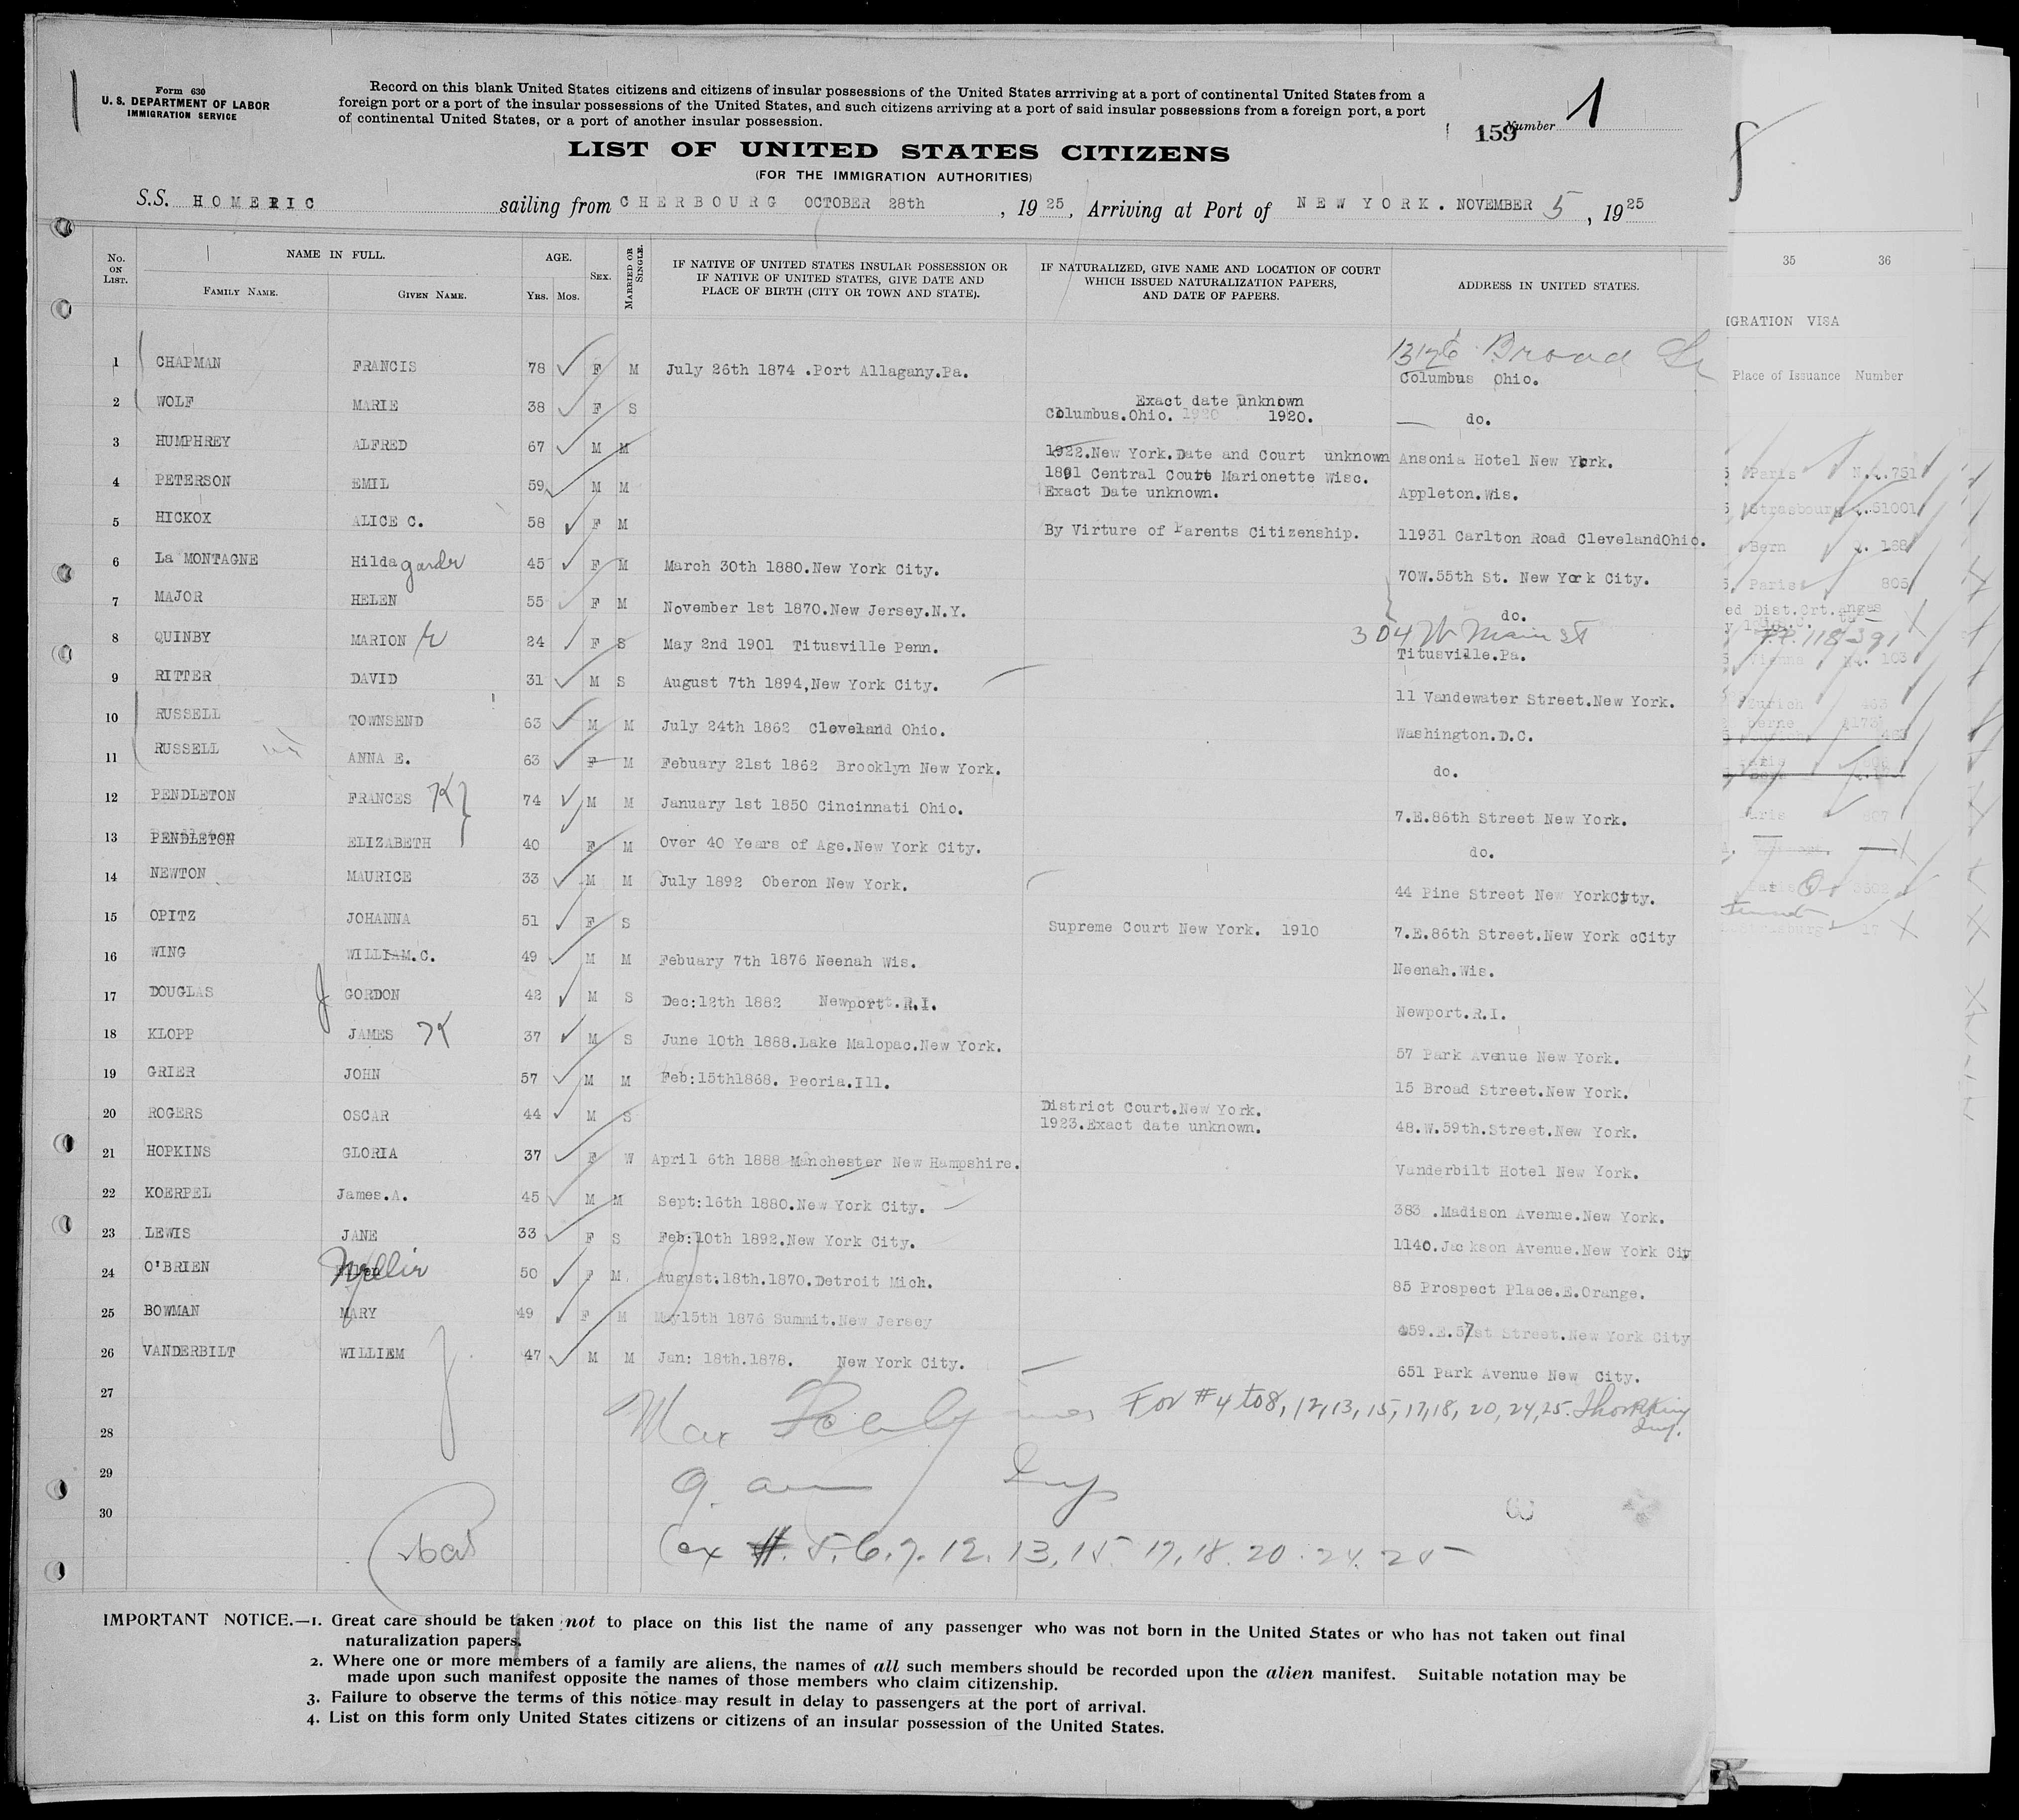 Form 630
U. S. DEPARTMENT OF LABOR
IMMIGRATION SERVICE
Record on this blank United States citizens and citizens of insular possessions of the United States arrriving at a port of continental United States from a
foreign port or a port of the insular possessions of the United States, and such citizens arriving at a port of said insular possessions from a foreign port, a port
of continental United States, or a port of another insular possession.
159 Number 1
LIST OF UNITED STATES CITIZENS
(FOR THE IMMIGRATION AUTHORITIES)
S.S. HOMERIC sailing from CHERBOURG OCTOBER 28th, 1925, Arriving at Port of NEW YORK. NOVEMBER 5, 1925
No. ON LIST. NAME IN FULL. FAMILY NAME. GIVEN NAME. AGE. YRS. MOS. SEX. MARRIED OR SINGLE. IF NATIVE OF UNITED STATES INSULAR POSSESSION OR IF NATIVE OF UNITED STATES, GIVE DATE AND PLACE OF BIRTH (CITY OR TOWN AND STATE). IF NATURALIZED, GIVE NAME AND LOCATION OF COURT WHICH ISSUED NATURALIZATION PAPERS, AND DATE OF PAPERS. ADDRESS IN UNITED STATES.
35 36
IGRATION VISA
Place of Issuance Number
1 CHAPMAN FRANCIS 78 F M July 26th 1874 .Port Allagany.Pa. Broad Columbus Ohio.
2 WOLF MARIE 38 F S Exact date unknown Columbus.Ohio. 1920 1920. do.
3 HUMPHREY ALFRED 67 M M 1922.New York.Date and Court unknown Ansonia Hotel New York.
4 PETERSON EMIL 59 M M 1891 Central Courte Marionette Wisc. Exact Date unknown. Appleton.Wis.
5 HICKOX ALICE C. 58 F M By Virture of Parents Citizenship. 11931 Carlton Road ClevelandOhio.
6 La MONTAGNE Hilda garde 45 F M March 30th 1880.New York City. 70W.55th St. New York City.
7 MAJOR HELEN 55 F M November 1st 1870.New Jersey.N.Y. do.
8 QUINBY MARION 24 F S May 2nd 1901 Titusville Penn. 304 W Main St Titusville.Pa.
9 RITTER DAVID 31 M S August 7th 1894,New York City. 11 Vandewater Street.New York.
10 RUSSELL TOWNSEND 63 M M July 24th 1862 Cleveland Ohio. Washington.D.C.
11 RUSSELL ANNA E. 63 F M Febuary 21st 1862 Brooklyn New York. do.
12 PENDLETON FRANCES 74 M M January 1st 1850 Cincinnati Ohio. 7.E.86th Street New York.
13 PENDLETON ELIZABETH 40 F M Over 40 Years of Age.New York City. do.
14 NEWTON MAURICE 33 M M July 1892 Oberon New York. 44 Pine Street New YorkCity.
15 OPITZ JOHANNA 51 F S Supreme Court New York. 1910 7.E.86th Street.New York cCity
16 WING WILLIAM.C. 49 M M Febuary 7th 1876 Neenah Wis. Neenah.Wis.
17 DOUGLAS GORDON 42 M S Dec:12th 1882 Newport.R.I. Newport.R.I.
18 KLOPP JAMES 37 M S June 10th 1888.Lake Malopac.New York. 57 Park Avenue New York.
19 GRIER JOHN 57 M M Feb:15th1868. Peoria.Ill. 15 Broad Street.New York.
20 ROGERS OSCAR 44 M S District Court.New York. 1923.Exact date unknown. 48.W.59th.Street.New York.
21 HOPKINS GLORIA 37 F W April 6th 1888 Manchester New Hampshire. Vanderbilt Hotel New York.
22 KOERPEL James.A. 45 M M Sept:16th 1880.New York City. 383 .Madison Avenue.New York.
23 LEWIS JANE 33 F S Feb:10th 1892.New York City. 1140.Jackson Avenue.New York City
24 O'BRIEN Nellie 50 F M August.18th.1870.Detroit Mich. 85 Prospect Place.E.Orange.
25 BOWMAN MARY 49 F M May15th 1876 Summit.New Jersey 459.E.57st Street.New York City
26 VANDERBILT WILLIEM 47 M M Jan: 18th.1878. New York City. 651 Park Avenue New City.
27
28
29
30
Max
For #4 to 8, 12, 13, 15, 17, 18, 20, 24, 25.
Insp
(ex 5. 6. 7. 12. 13, 15. 17, 18. 20. 24. 25
Paris 751
Strasbourg 51001
Bern 168
Paris 805
P.P. 118391
IMPORTANT NOTICE.—1. Great care should be taken not to place on this list the name of any passenger who was not born in the United States or who has not taken out final
naturalization papers.
2. Where one or more members of a family are aliens, the names of all such members should be recorded upon the alien manifest. Suitable notation may be
made upon such manifest opposite the names of those members who claim citizenship.
3. Failure to observe the terms of this notice may result in delay to passengers at the port of arrival.
4. List on this form only United States citizens or citizens of an insular possession of the United States.